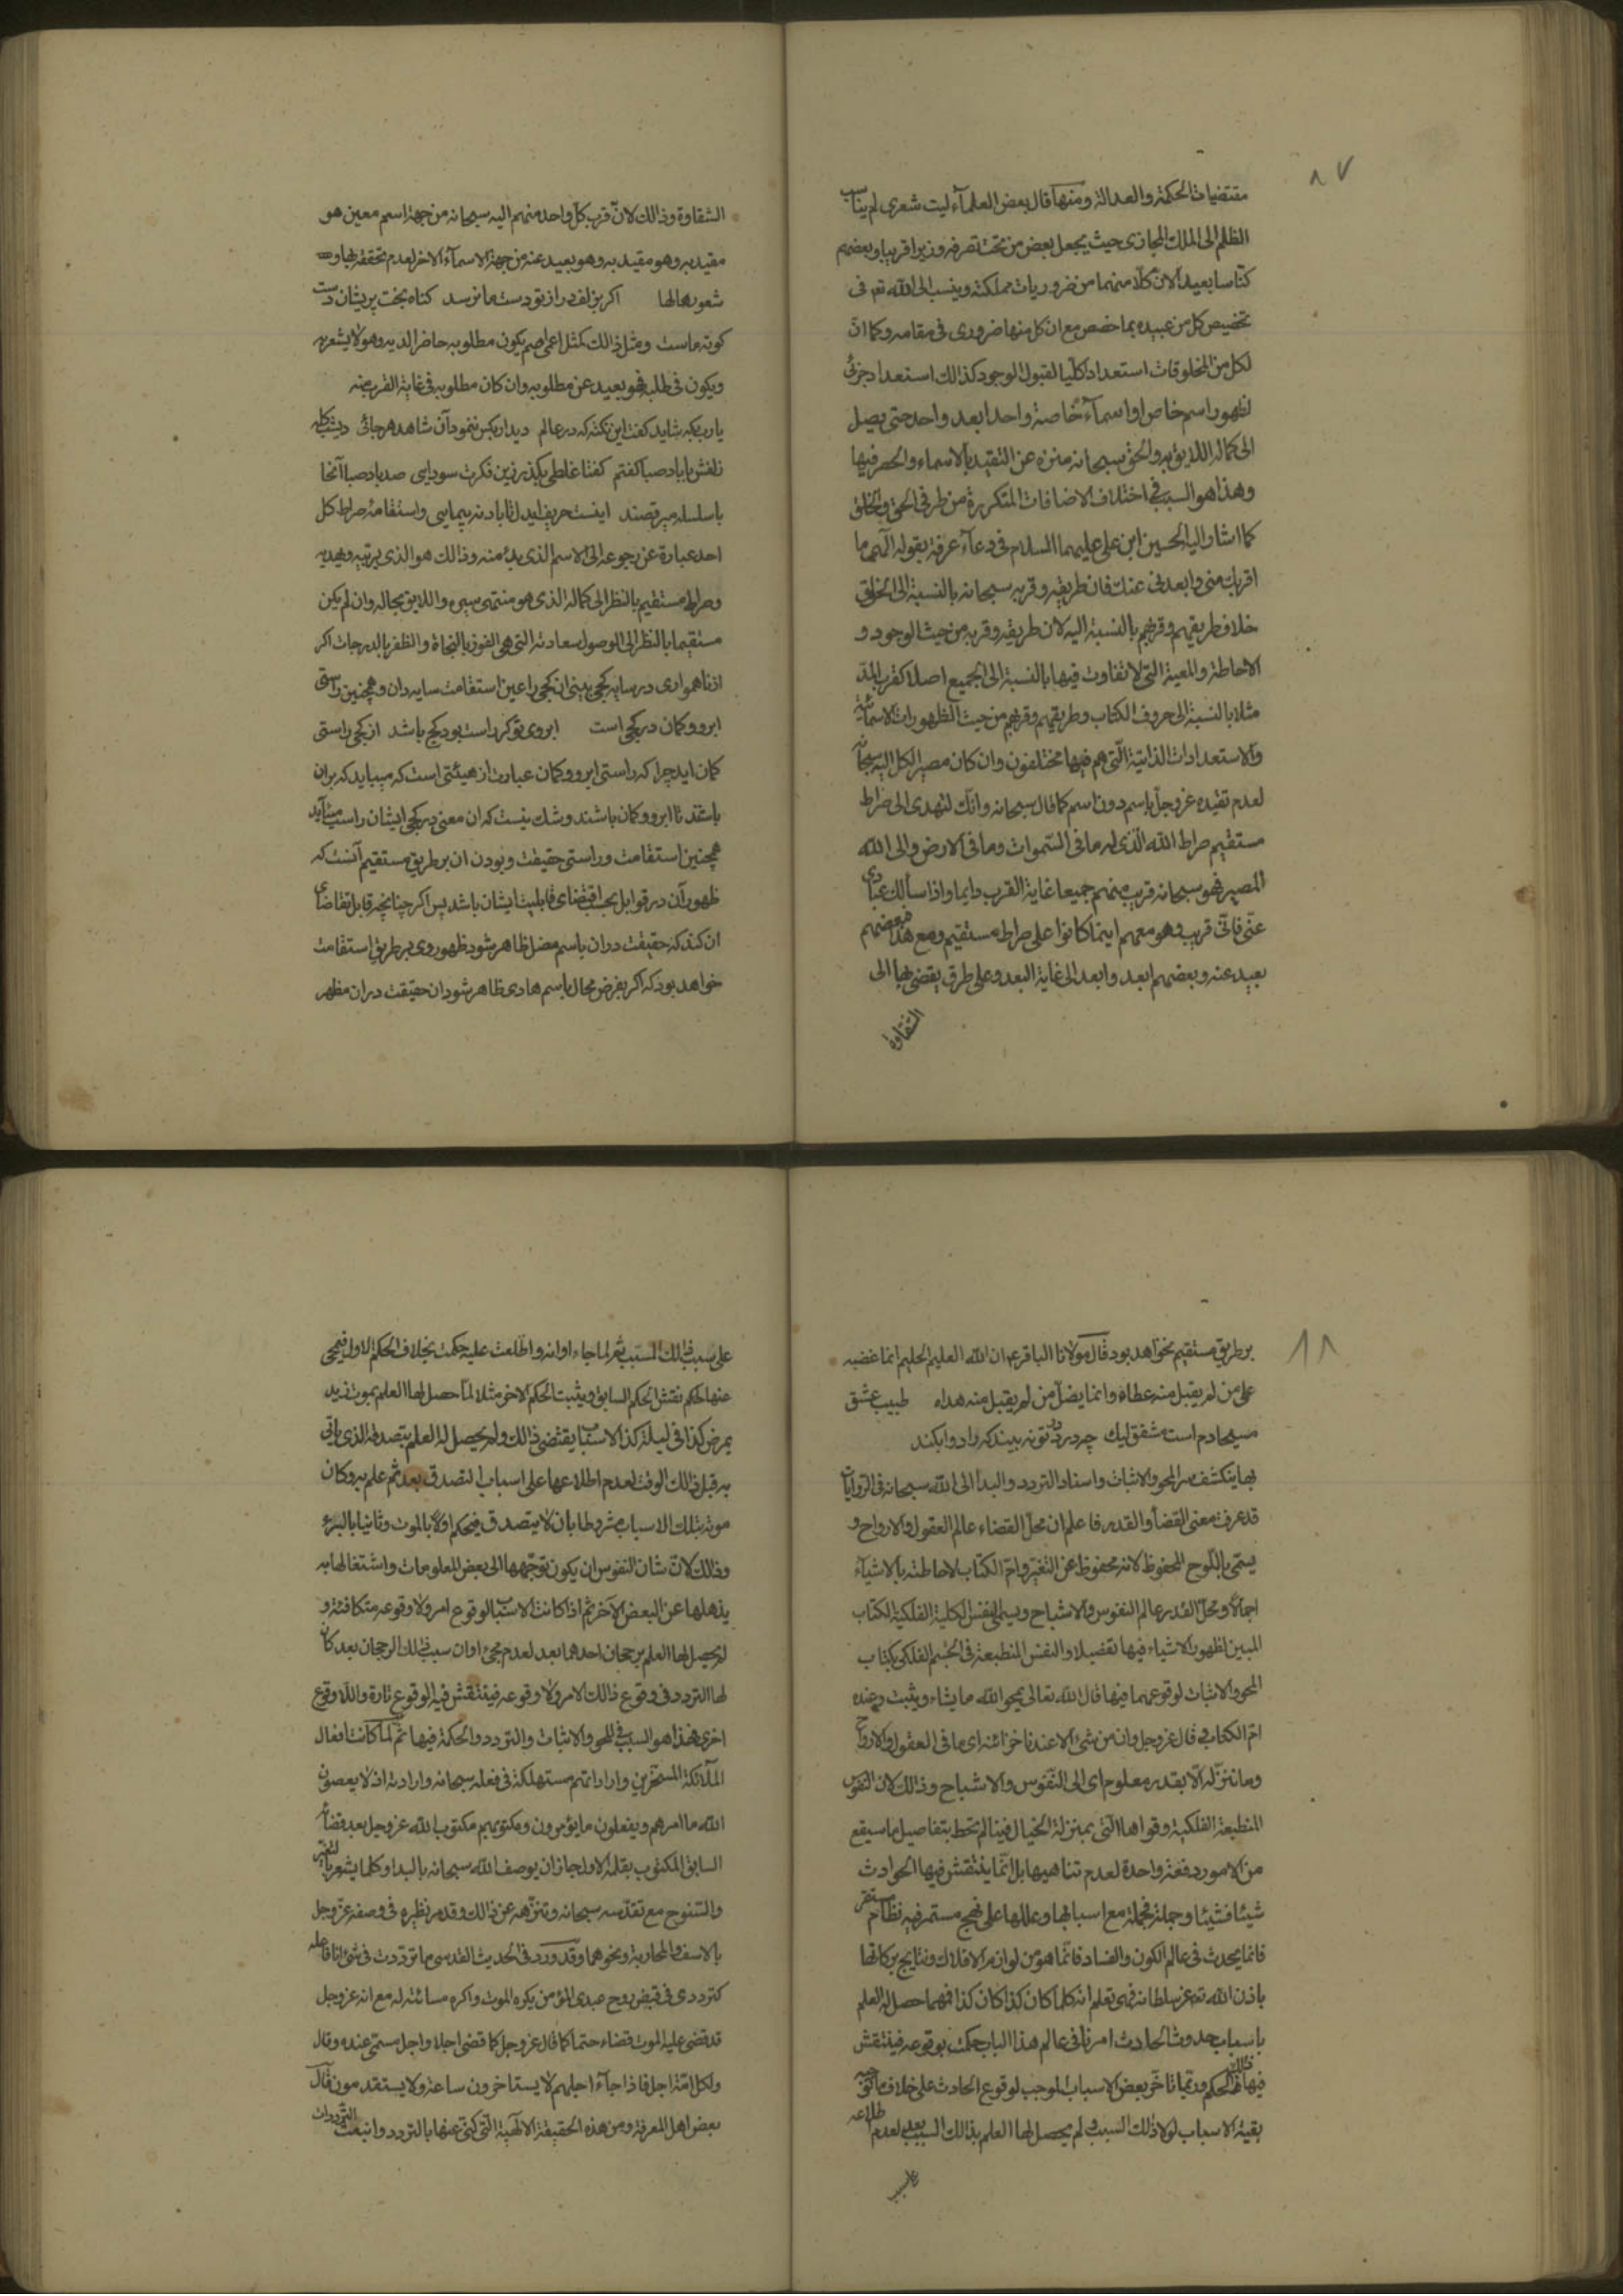 ٨٧
مقتضیات الحکمة والعدالة ومنها قال بعض العلمآء لیت شعری لم ینسب
الظلم الی الملک المجازی حیث یجعل بعض من تحت تصرفه وزیرا قریبا وبعضهم
کنّاسا بعیدا لان کلّا منهما من ضروریات مملکته وینسب الی الله تعـ فی
تخصیص کل من عبیده بما خصص مع ان کل منها ضروری فی مقامه وکما انّ
لکل من المخلوقات استعدادا کلّیا لقبول الوجود کذالک استعداد جزئی
لظهور اسم خاص او اسمآء خاصة واحدا بعد واحد حتی یصل
الی کماله اللایق به والحق سبحانه منزه عن التقید بالاسماء والحصر فیها
وهذا هو السبب فی اختلاف الاضافات المتکررة من طرفی الحق والخلق
کما اشار الیه الحسین ابن علی علیهما السلام فی دعآء عرفة بقوله الهی ما
اقربک منی وابعدنی عنک فان طریقه وقربه سبحانه بالنسبة الی الخلق
خلاف طریقهم وقربهم بالنسبة الیه لان طریقه وقربه من حیث الوجود و
الاحاطة والمعیة التی لا تفاوت فیها بالنسبة الی الجمیع اصلا کقرب المدّ
مثلا بالنسبة الی حروف الکتاب وطریقهم وقربهم من حیث الظهورات الاسمائیة
والاستعدادات الذاتیة الّتی هم فیها مختلفون وان کان مصیر الکل الیه سبحانه
لعدم تقیده عزوجلّ باسم دون اسم کما قال سبحانه وانّک لتهدی الی صراط
مستقیم صراط الله الّذی له ما فی السّموات وما فی الارض والی الله
المصیر فهو سبحانه قریب منهم جمیعا غایة القرب دایما واذا سألک عبادی
عنّی فانّی قریب وهو معهم اینما کانوا علی صراط مستقیم ومع هذا فبعضهم
بعید عنه وبعضهم ابعد وابعد الی غایة البعد وعلی طرق یفضی بها الی
الشقاوة
الشقاوة وذالک لانّ قرب کلّ واحد منهم الیه سبحانه من جهة اسم معین هو
مقید به وهو مقید به وهو بعید عنه من جهة الاسمآء الاخر لعدم تحققه بها و
شعوره بها لها اکر بزلف دراز تو دست ما نرسد کناه بخت پریشان ودست
کوته ماست ومثل ذالک کمثل اعمی اصم یکون مطلوبه حاضرا لدیه وهو لا یشعر به
ویکون فی طلبه فهو بعید عن مطلوبه وان کان مطلوبه فی غایة القرب منه
یا رب بکه شاید کفت این نکته که در عالم دیدار بکس ننمود آن شاهد هرجائی دیشب کله
زلفش با باد صبا کفتم کفتا غلطی بکذر زین فکرت سودایی صد باد صبا آنجا
با سلسله میرقصند اینست حریف ایدل تا باد نه پیمایی واستقامة صراط کل
احد عبارة عن رجوعه الی الاسم الذی بدئ منه وذالک هو الذی یربّیه ویهدیه
وصراط مستقیم بالنظر الی کماله الذی هو منتهی سیره واللایق بحاله وان لم یکن
مستقیما بالنظر الی الوصول لسعادته التی هی الفوز بالنجاة والظفر بالدرجات اکر
از ناهمواری در سایه کجی بینی ان کجی را عین استقامت سایه دان وهمچنین راستی
ابرو وکمان در کجی است ابروی تو کر راست بود کج باشد از کجی راستی
کمان اید چرا که راستی ابرو وکمان عبارت از هیئتی است که میباید که بران
باشند تا ابرو وکمان باشند وشک نیست که ان معنی در کجی ایشان راست میآید
همچنین استقامت وراستی حقیقت وبودن ان بر طریق مستقیم آنست که
ظهور آن در قوابل بحسب اقتضای قابلیت ایشان باشد پس اکر چنانچه قابل تقاضای
ان کند که حقیقت دران باسم مضل ظاهر شود ظهور وی بر طریق استقامت
خواهد بود که اکر بفرض محال باسم هادی ظاهر شود ان حقیقت دران مظهر
٨٨
بر طریق مستقیم نخواهد بود قال مولانا الباقر عـ ان الله العلیم الحلیم انما غضبه
علی من لم یقبل منه عطاه وانما یضلّ من لم یقبل منه هداه طبیب عشق
مسیحا دم است مشفق لیک چه درد در تو نه بیند که را دوا بکند
بها ینکشف سر المحو والاثبات واسناد التردد والبدا الی الله سبحانه فی الروایات
قد عرفت معنی القضآ والقدر فاعلم ان محلّ القضاء عالم العقول والارواح و
یسمّی باللّوح المحفوظ لانه محفوظ عن التغیر وامّ الکتاب لاحاطته بالاشیآء
اجمالا ومحل القدر عالم النفوس والاشباح ویسمی النفس الکلیة الفلکیة الکتاب
المبین لظهور الاشیاء فیها تفصیلا والنفس المنطبعة فی الجسم الفلکی کتاب
المحو والاثبات لوقوعهما فیها قال الله تعالی یمحو الله ما یشاء ویثبت وعنده
امّ الکتاب وقال عزوجل وان من شیء الا عندنا خزائنه ای ما فی العقول والارواح
وما ننزّله الا بقدر معلوم ای الی النفوس والاشباح وذالک لان النفوس
المنطبعة الفلکیة وقواها الّتی بمنزلة الخیال فینا لم تحط بتفاصیل ما سیقع
من الامور دفعة واحدة لعدم تناهیها بل انّما ینتقش فیها الحوادث
شیئا فشیئا وجملة فجملة مع اسبابها وعللها علی نهج مستمر فیه نظام مستقر
فانما یحدث فی عالم الکون والفساد فانّما هو من لوازم الافلاک ونتایج برکاتها
باذن الله تعـ عز سلطانه فهی تعلم انه کلما کان کذا کان کذا فهما حصل له العلم
باسباب حدوث الحادث امر ما فی عالم هذا الباب حکمت بوقوعه فینتقش
فیها ذالک الحکم وربّما تاخّر بعض الاسباب الموجب لوقوع الحادث علی خلاف ما توجبه
بقیة الاسباب لولا ذالک السبب ولم یحصل لها العلم بذالک السبب بعد لعدم اطلاعه
علی سبب
علی سبب ذالک السبب ثم لما جاء اوانه واطّلعت علیه حکمت بخلاف الحکم الاول فیمحی
عنها الحکم نقش الحکم السابق ویثبت الحکم الاخر مثلا لمّا حصل لها العلم بموت زید
بمرض کذا فی لیلة کذا الاسباب یقتضی ذالک ولم یحصل له العلم بتصدقه الذی یاتی
به قبل ذالک الوقت لعدم اطلاعها علی اسباب التصدق بعد ثم علم به وکان
موته بتلک الاسباب مشروطا بان لا یتصدق فیحکم اوّلا بالموت وثانیا بالبرء
وذالک لانّ شان النفوس ان یکون توجّهها الی بعض المعلومات واشتغالها به
یذهلها عن البعض الآخر ثم اذا کانت الاسباب لوقوع امر ولا وقوعه متکافئة و
لم یحصل لها العلم برجحان احدهما بعد لعدم مجئ اوان سبب ذالک الرجحان بعد کان
لها التردد فی وقوع ذالک الامر ولا وقوعه فینتقش فیه الوقوع تارة واللا وقوع
اخری فهذا هو السبب فی المحو والاثبات والتردد والحکمة فیها ثم لمّا کانت افعال
الملآئکة المسخّرین واراداتهم مستهلکة فی فعله سبحانه وارادته اذ لا یعصون
الله ما امرهم ویفعلون ما یؤمرون ومکتوبهم مکتوب الله عزوجل بعد قضائه
السابق المکتوب بقلمه الاول جاز ان یوصف الله سبحانه بالبدا وکلما یشعر بالتغیر
والسنوح مع تقدّسه سبحانه وتنزّهه عن ذالک وقد مر نظیره فی وصفه عزوجل
بالاسف والمحاربة ونحوهما وقد ورد فی الحدیث القدسی ما تردّدت فی شئ انا فاعله
کترددی فی قبض روح عبدی المؤمن یکره الموت واکره مسائته له مع انه عزوجل
قد قضی علیه الموت قضاء حتما کما قال عزوجل کما قضی اجلا واجل مسمّی عنده وقال
ولکل امّة اجل فاذا جآء اجلهم لا یستاخرون ساعة ولا یستقدمون قال
بعض اهل المعرفة ومن هذه الحقیقة الالهیة التی کنّی عنها بالتردد وانبعث التردّدات